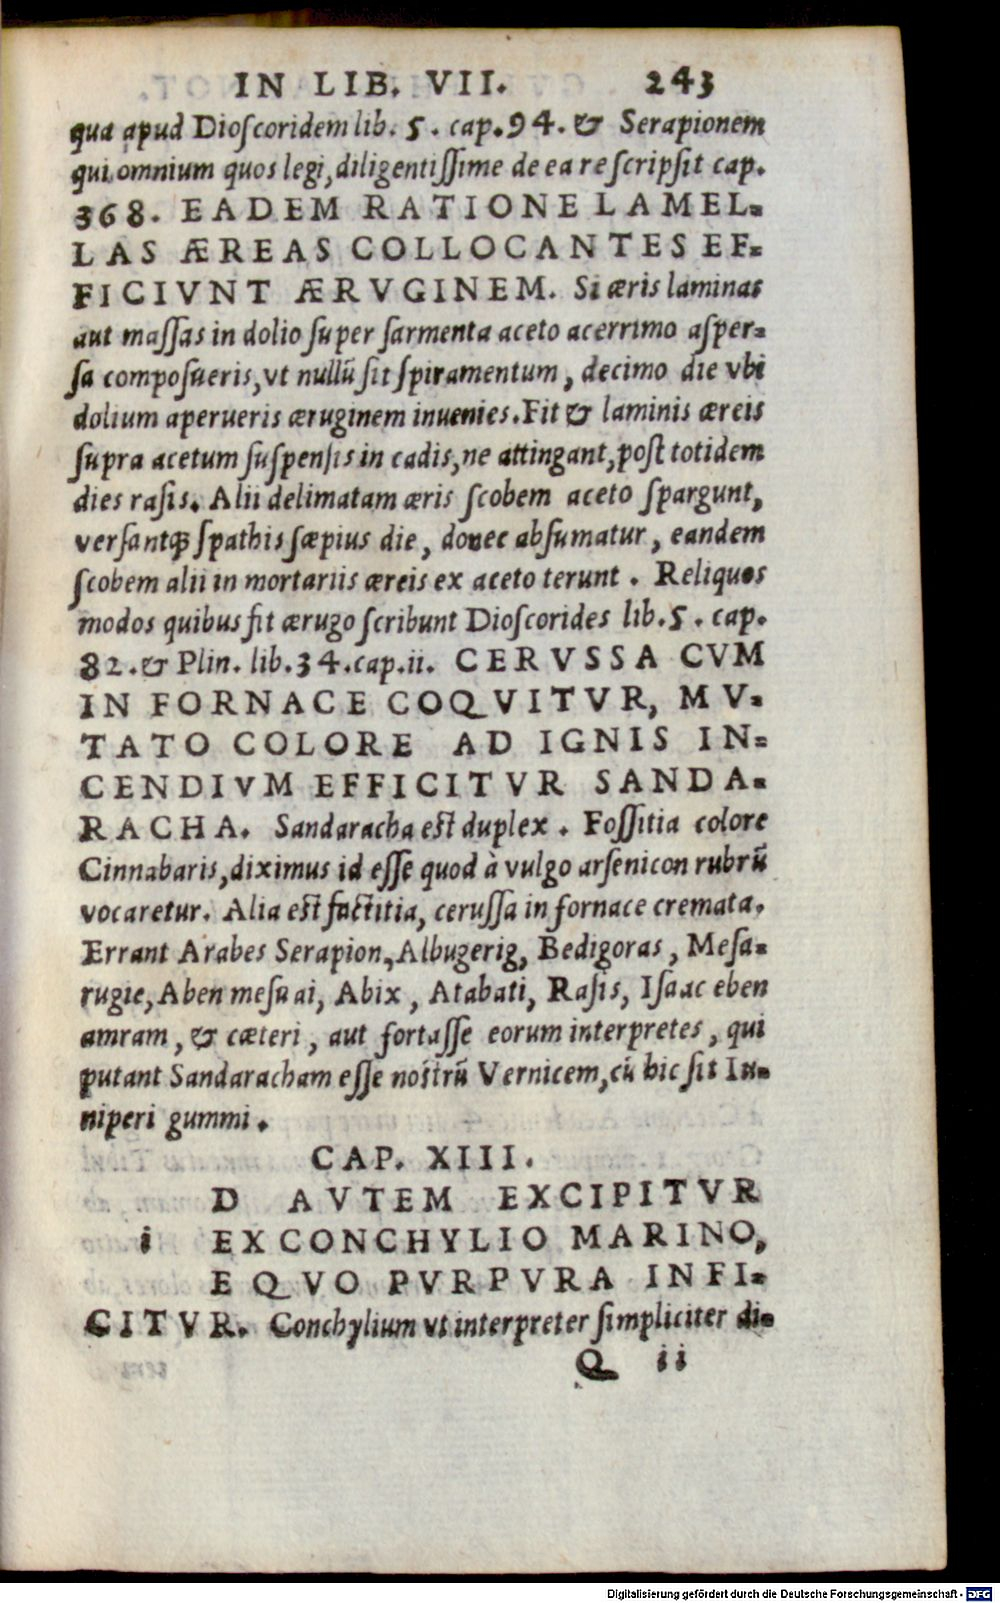 IN LIB. VII. 243
qua apud Dioſcoridem lib. 5. cap. 94. & Serapionem
qui omnium quos legi, diligentiſſime de ea re ſcripſit cap.
368. EADEM RATIONE LAMEL-
LAS ÆREAS COLLOCANTES EF-
FICIVNT ÆRVGINEM. Si æris laminas
aut maſſas in dolio ſuper ſarmenta aceto acerrimo aſper-
ſa compoſueris, vt nullũ ſit ſpiramentum, decimo die vbi
dolium aperueris æruginem inuenies. Fit & laminis æreis
ſupra acetum ſuſpenſis in cadis, ne attingant, poſt totidem
dies raſis. Alii delimatam æris ſcobem aceto ſpargunt,
verſantq́ꝫ ſpathis ſæpius die, donec abſumatur, eandem
ſcobem alii in mortariis æreis ex aceto terunt. Reliquos
modos quibus fit ærugo ſcribunt Dioſcorides lib. 5. cap.
82. & Plin. lib. 34. cap. ii. CERVSSA CVM
IN FORNACE COQVITVR, MV-
TATO COLORE AD IGNIS IN-
CENDIVM EFFICITVR SANDA-
RACHA. Sandaracha eſt duplex. Foſſitia colore
Cinnabaris, diximus id eſſe quod à vulgo arſenicon rubrũ
vocaretur. Alia eſt factitia, ceruſſa in fornace cremata.
Errant Arabes Serapion, Albugerig, Bedigoras, Meſa-
rugie, Aben meſuai, Abix, Atabati, Raſis, Iſaac eben
amram, & cæteri, aut fortaſſe eorum interpretes, qui
putant Sandaracham eſſe noſtrũ Vernicem, cũ hic ſit Iu-
niperi gummi.
CAP. XIII.
D AVTEM EXCIPITVR
i EX CONCHYLIO MARINO,
E QVO PVRPVRA INFI-
CITVR. Conchylium vt interpreter ſimpliciter di-
Q ii
Digitalisierung gefördert durch die Deutsche Forschungsgemeinschaft - DFG